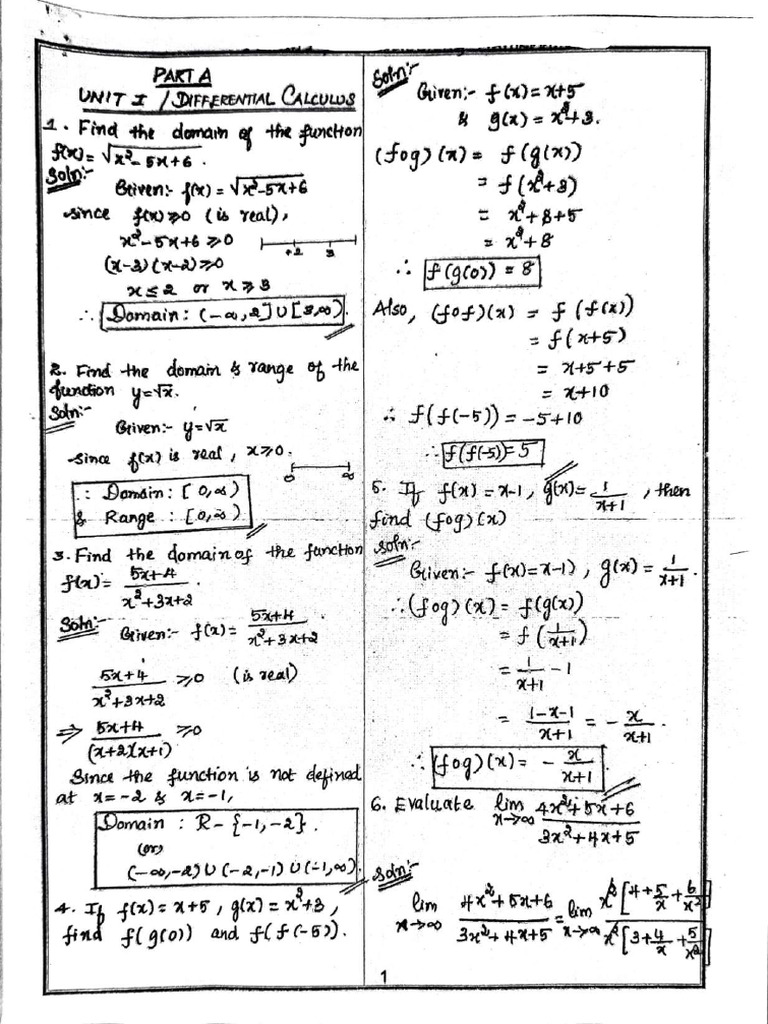 PART A
UNIT I / DIFFERENTIAL CALCULUS
1. Find the domain of the function
f(x) = √x²-5x+6.
Soln:-
Given:- f(x) = √x²-5x+6
since f(x) ≥ 0 (is real),
x²-5x+6 ≥ 0
+2 3
(x-3)(x-2) ≥ 0
x ≤ 2 or x ≥ 3
∴ Domain: (-∞, 2] ∪ [3, ∞)
2. Find the domain & range of the
function y=√x.
Soln:-
Given:- y=√x
since f(x) is real, x ≥ 0.
0 ∞
∴ Domain: [0, ∞)
& Range: [0, ∞)
3. Find the domain of the function
f(x) = (5x+4)/(x²+3x+2).
Soln:-
Given:- f(x) = (5x+4)/(x²+3x+2)
(5x+4)/(x²+3x+2) ≥ 0 (is real)
⇒ (5x+4)/((x+2)(x+1)) ≥ 0
Since the function is not defined
at x=-2 & x=-1,
Domain: R - {-1, -2}.
(or)
(-∞, -2) ∪ (-2, -1) ∪ (-1, ∞).
4. If f(x) = x+5, g(x) = x²+3,
find f(g(0)) and f(f(-5)).
Soln:-
Given:- f(x) = x+5
& g(x) = x²+3.
(fog)(x) = f(g(x))
= f(x²+3)
= x²+3+5
= x²+8
∴ f(g(0)) = 8
Also, (fof)(x) = f(f(x))
= f(x+5)
= x+5+5
= x+10
∴ f(f(-5)) = -5+10
∴ f(f(-5)) = 5
5. If f(x) = x-1, g(x) = 1/(x+1), then
find (fog)(x)
Soln:-
Given:- f(x) = x-1), g(x) = 1/(x+1).
∴ (fog)(x) = f(g(x))
= f(1/(x+1))
= 1/(x+1) - 1
= (1-x-1)/(x+1) = -x/(x+1).
∴ (fog)(x) = -x/(x+1)
6. Evaluate lim x→∞ (4x²+5x+6)/(3x²+4x+5)
Soln:-
lim x→∞ (4x²+5x+6)/(3x²+4x+5) = lim x→∞ x²[4+5/x+6/x²]/x²[3+4/x+5/x²]
1